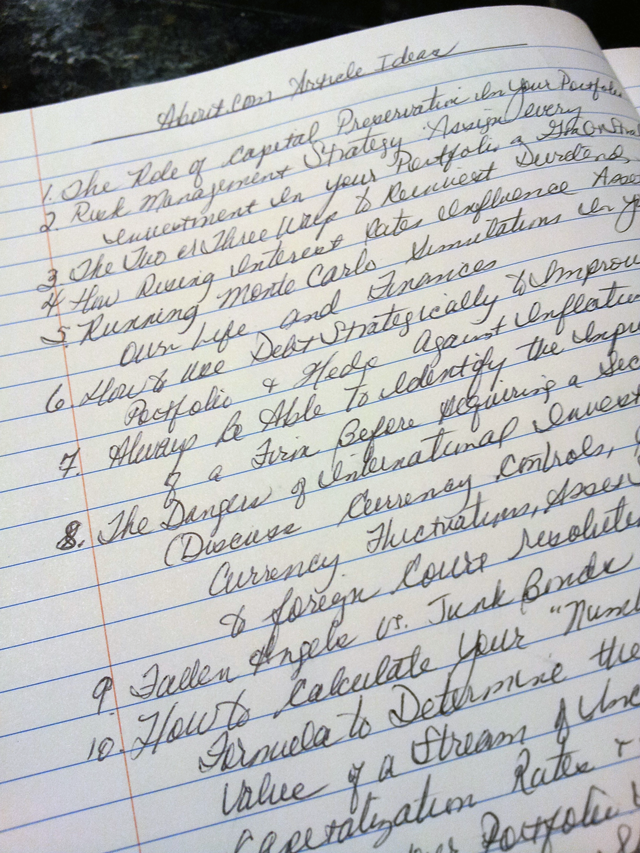 About.com Article Ideas
1. The Role of Capital Preservation In Your Portfolio
2. Risk Management Strategy: Assign every
Investment In your Portfolio a
3 The Two or Three Ways to Reinvest Dividends
4 How Rising Interest Rates Influence
5. Running Monte Carlo Simulations In
Own Life and Finances
6. How to use Debt Strategically to
Portfolio & Hedge Against
7. Always be Able to Identify the
of a Firm Before Acquiring a
8. The Dangers of International
(Discuss Currency Controls,
Currency Fluctuations,
& foreign
9 Fallen Angels vs. Junk Bonds
10. How to Calculate Your
Formula to Determine the
Value of a Stream of
Capitalization Rates
Portfolio